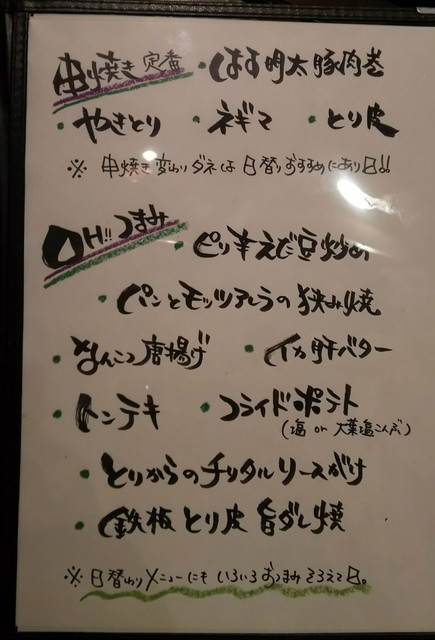 串焼き 定番 ・はす明太豚肉巻
・やきとり ・ネギマ ・とり皮
※ 串焼き変わりダネは日替りおすすめにあり日!!
OH!! つまみ ・ピリ辛えだ豆炒め
・パンとモッツアレラの挟み焼
・なんこつ唐揚げ ・イカ肝バター
・トンテキ ・フライドポテト
(塩 or 大葉塩こんぶ)
・とりからのチリタルソースがけ
・鉄板とり皮 旨ダレ焼
※ 日替わりメニューにも いろいろおつまみ そろえて日。